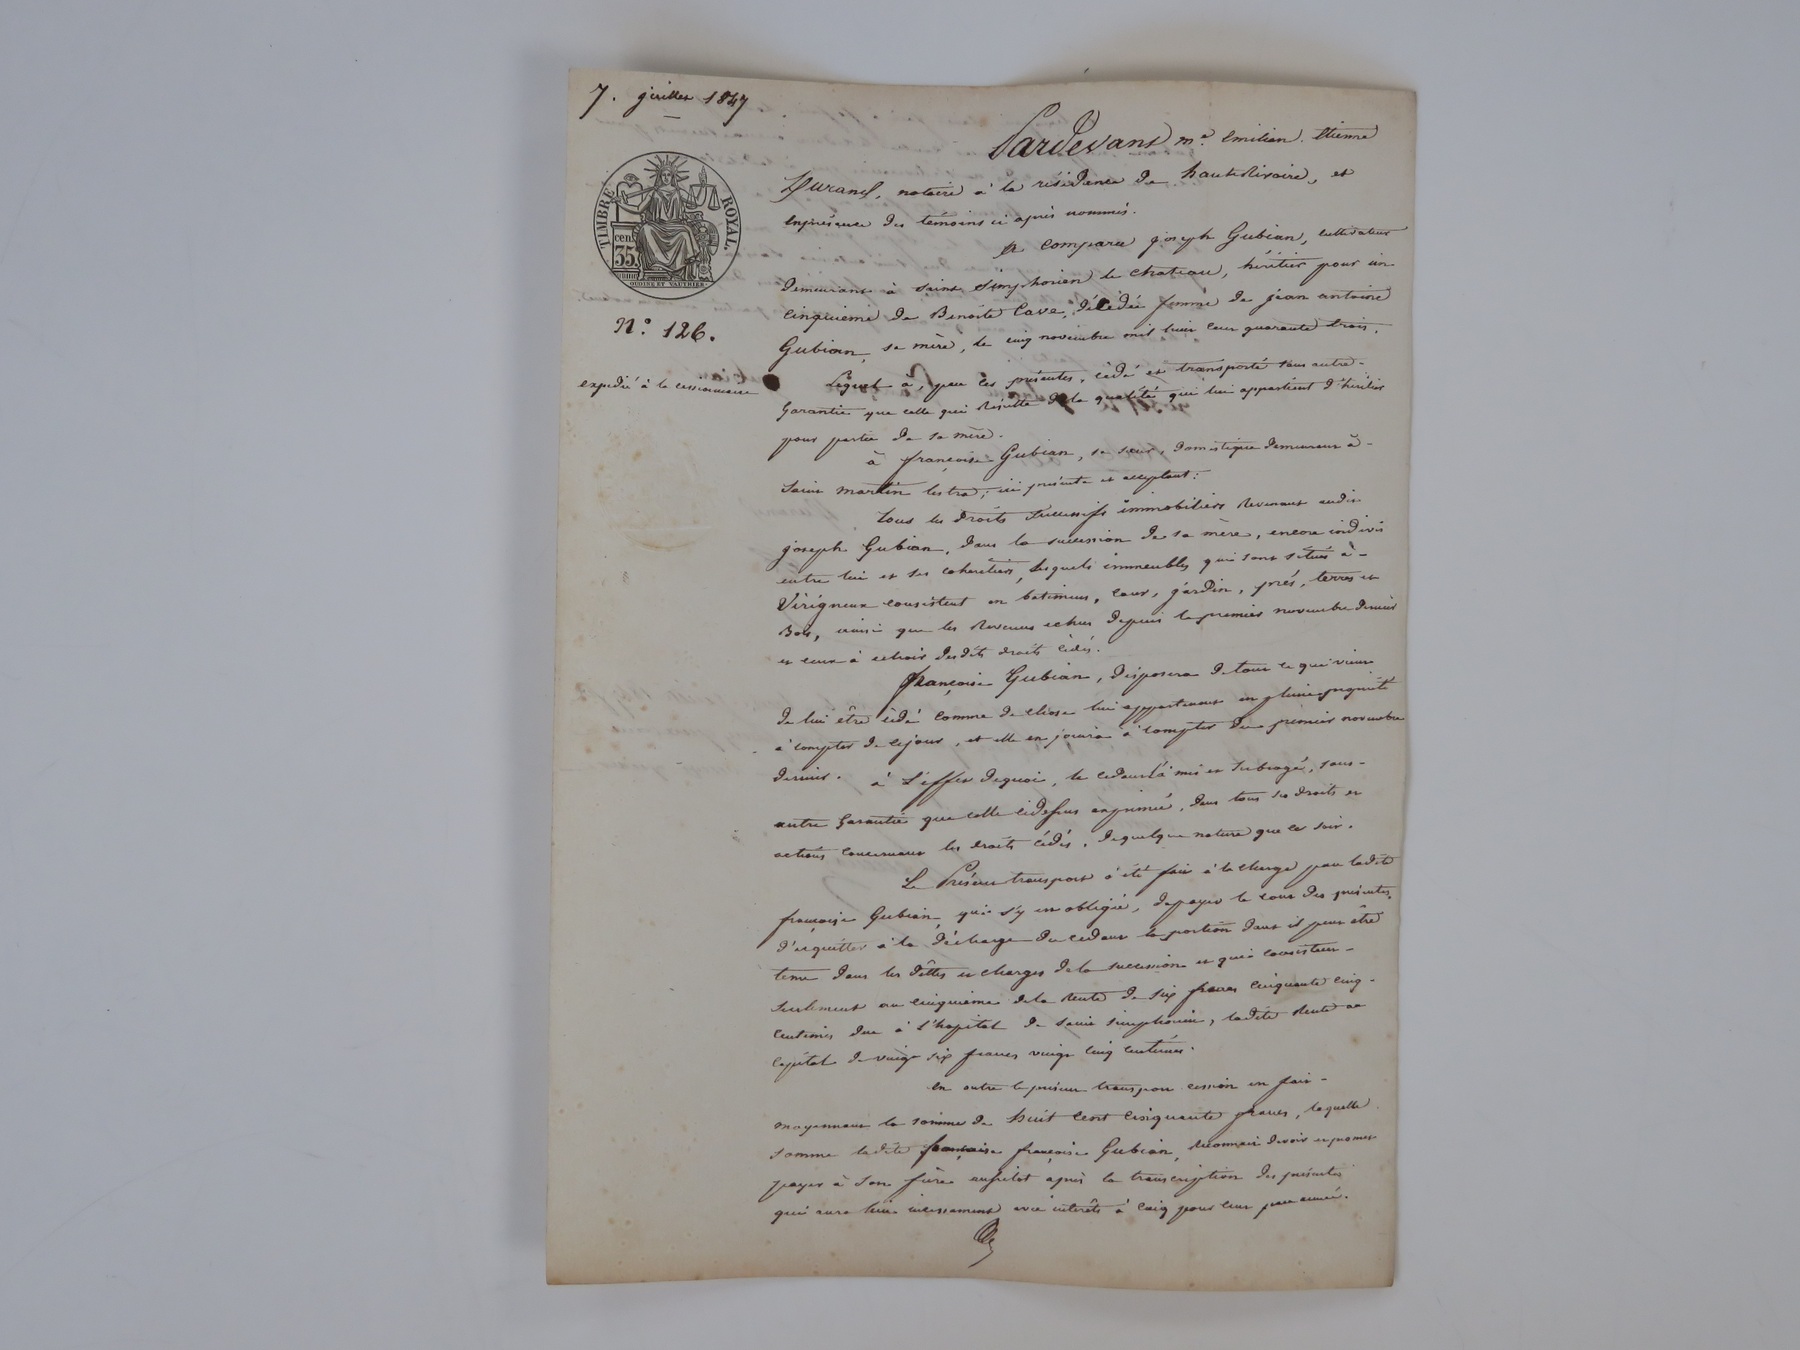 7. juillet 1847
TIMBRE ROYAL.
cen.
35.
OUDINÉ ET VAUTHIER
N.° 126.
expédié à la cessionnaire
Pardevant m.e emilien Etienne
Durand, notaire à la résidence de hauterivoire, et
enprésence des témoins ci après nommés.
a comparu joseph Gubian, cultivateur
demeurant à saint Simphorien le chateau, héritier pour un
cinquieme de Benoite Cave, décédée femme de jean antoine
Gubian, sa mère, le cinq novembre mil huit cent quarante trois.
Lequel a, par ces présentes, cédé et transporté sans autre
garantie que celle qui résulte de la qualité qui lui appartient d'héritier
pour partie de sa mère.
à françoise Gubian, sa sœur, domestique demeurant à
saint martin lestra, ici présente et acceptant:
tous les droits successifs immobiliers revenant audit
joseph Gubian, dans la succession de sa mère, encore indivis
entre lui et ses cohéritiers, lesquels immeubles qui sont situés à
Virigneux consistent en batimens, cour, jardin, prés, terres et
Bois, ainsi que les revenus echus depuis le premier novembre dernier
et ceux à echoir desdits droits cédés.
françoise Gubian, disposera de tout ce qui vient
de lui être cédé comme de chose lui appartenant en pleine propriété
à compter de cejour, et elle en jouira à compter du premier novembre
dernier. à L'effet dequoi, le cedant l'a mis et subrogé, sans
autre garantie que celle cidessus exprimée, dans tous ses droits et
actions concernant les droits cédés, dequelque nature que ce soit.
Le Présent transport a été fait à la charge par ladite
françoise Gubian, qui s'y est obligée, depayer le cout des présentes,
d'acquitter à la décharge du cedant la portion dont il peut être
tenu dans les dettes et charges dela succession et qui consistent
seulement au cinquième dela rente de six francs cinquante cinq
centimes due à l'hopital de saint simphorien, ladite rente au
capital de vingt six francs vingt cinq centimes.
en outre le présent transport cession est fait
moyennant la somme de huit cent cinquante francs, laquelle
somme ladite françoise Gubian, reconnait devoir et promet
payer à son frère aussitot après la transcription des présentes
qui aura lieu incessament avec intérêts à cinq pour cent par année.